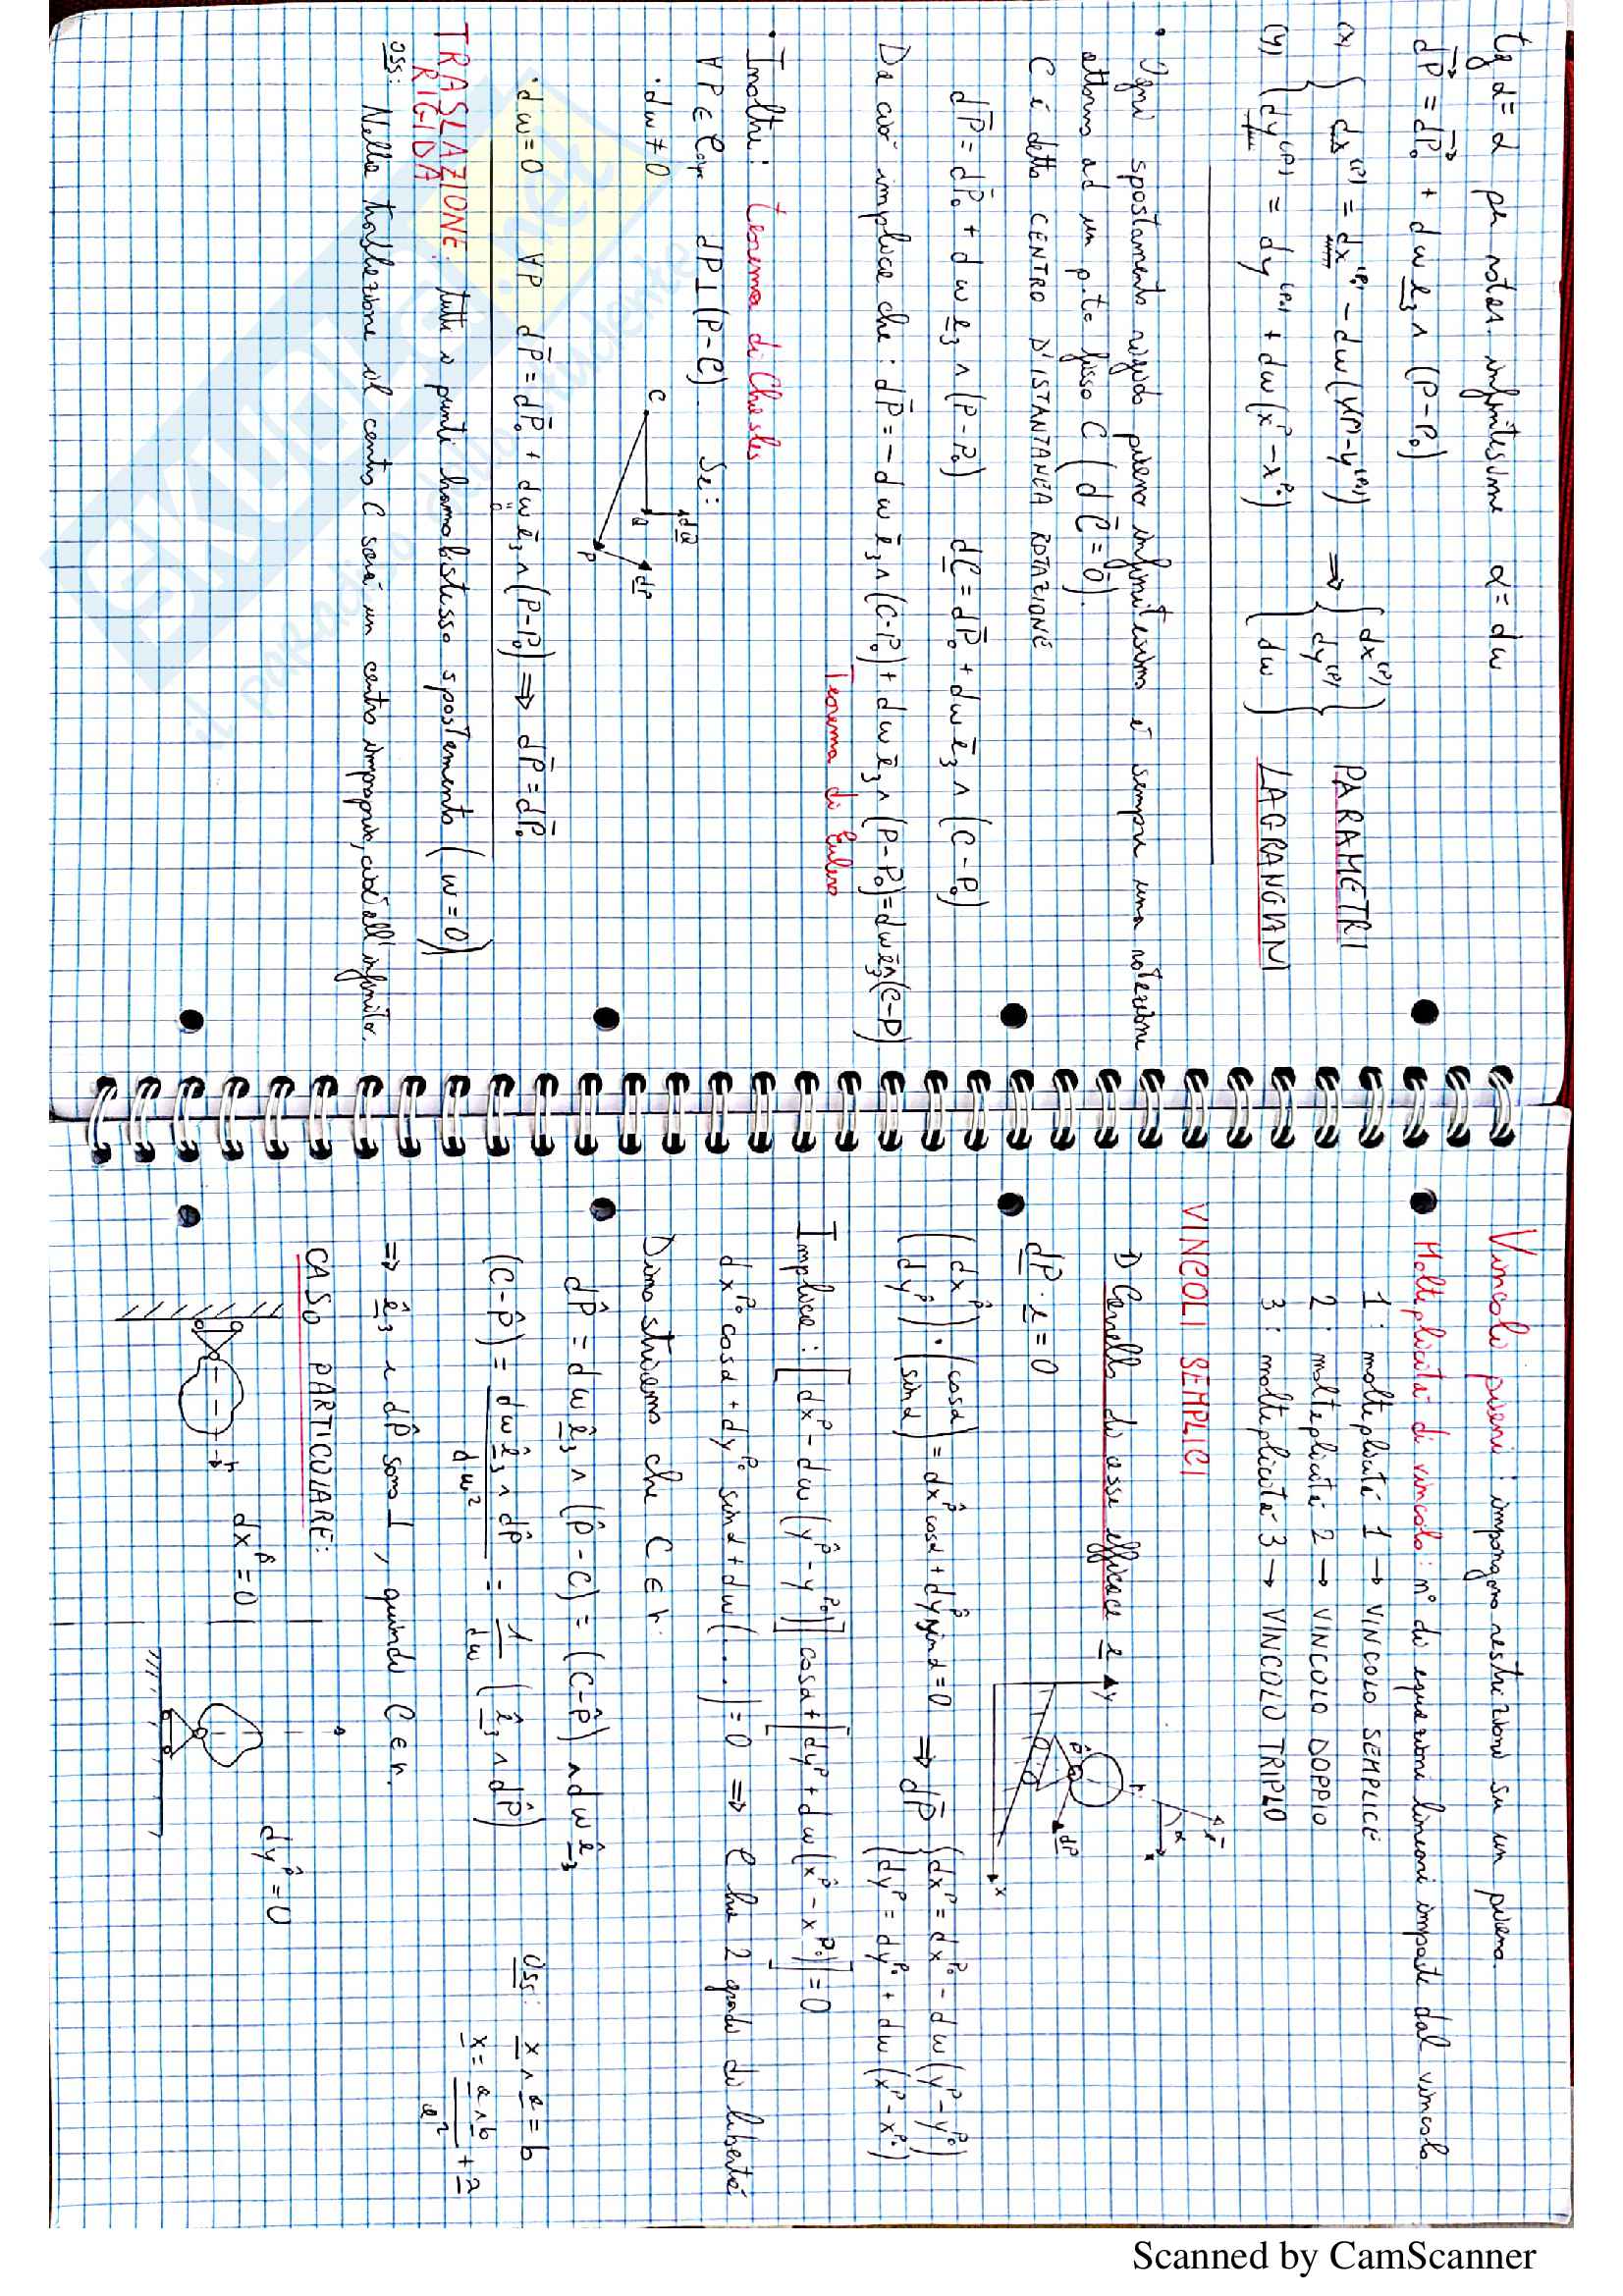 tg α = α per rotaz. infinitesime α = dω
dP = dP₀ + dω e₃ ∧ (P-P₀)
(x) { dx⁽ᴾ⁾ = dx⁽ᴾ⁰⁾ - dω (y⁽ᴾ⁾ - y⁽ᴾ⁰⁾) ⇒ { dx⁽ᴾ⁾ dy⁽ᴾ⁾ dω } PARAMETRI
(y) { dy⁽ᴾ⁾ = dy⁽ᴾ⁰⁾ + dω (xᴾ - xᴾ⁰) LAGRANGIANI
• Ogni spostamento rigido piano infinitesimo è sempre una rotazione
attorno ad un p.to fisso C (dC = 0).
C è detto CENTRO D'ISTANTANEA ROTAZIONE
dP = dP₀ + dω e₃ ∧ (P-P₀) dC = dP₀ + dω e₃ ∧ (C-P₀)
Da ciò implica che: dP = - dω e₃ ∧ (C-P₀) + dω e₃ ∧ (P-P₀) = dω e₃ ∧ (C-P)
Teorema di Eulero
• Inoltre: teorema di Chasles
∀P ∈ Corp dP ⊥ (P-C). Se:
• dω ≠ 0
C Q dQ P dP
• dω = 0 ∀P dP = dP₀ + dω e₃ ∧ (P-P₀) ⇒ dP = dP₀
0
TRASLAZIONE RIGIDA: tutti i punti hanno lo stesso spostamento (ω = 0)
OSS: Nella traslazione il centro C sarà un centro improprio, cioè all'infinito.
Vincoli piani: impongono restrizioni su un piano.
Molteplicità di vincolo: n° di equazioni lineari imposte dal vincolo
1: molteplicità 1 → VINCOLO SEMPLICE
2: molteplicità 2 → VINCOLO DOPPIO
3: molteplicità 3 → VINCOLO TRIPLO
VINCOLI SEMPLICI
D Carrello di asse efficace r
dP · r = 0
y P̂ r α x dP x
(dxᴾ̂ dyᴾ̂) · (cosα sinα) = dxᴾ̂ cosα + dyᴾ̂ sinα = 0 ⇒ dP { dxᴾ = dxᴾ⁰ - dω (yᴾ - yᴾ⁰)
{ dyᴾ = dyᴾ⁰ + dω (xᴾ - xᴾ⁰)
Implica: [dxᴾ⁰ - dω (yᴾ̂ - yᴾ⁰)] cosα + [dyᴾ⁰ + dω (xᴾ̂ - xᴾ⁰)] = 0
dxᴾ⁰ cosα + dyᴾ⁰ sinα + dω (...) = 0 ⇒ C ha 2 gradi di libertà
Dimostriamo che C ∈ r
dP̂ = dω ê₃ ∧ (P̂-C) = (C-P̂) ∧ dω ê₃
(C-P̂) = dω ê₃ ∧ dP̂ / dω² = 1/dω (ê₃ ∧ dP̂)
OSS: x ∧ a = b
x = a ∧ b / a² + λ
⇒ ê₃ e dP̂ sono ⊥, quindi C ∈ r.
CASO PARTICOLARE:
r dxᴾ̂ = 0
dyᴾ̂ = 0
Scanned by CamScanner